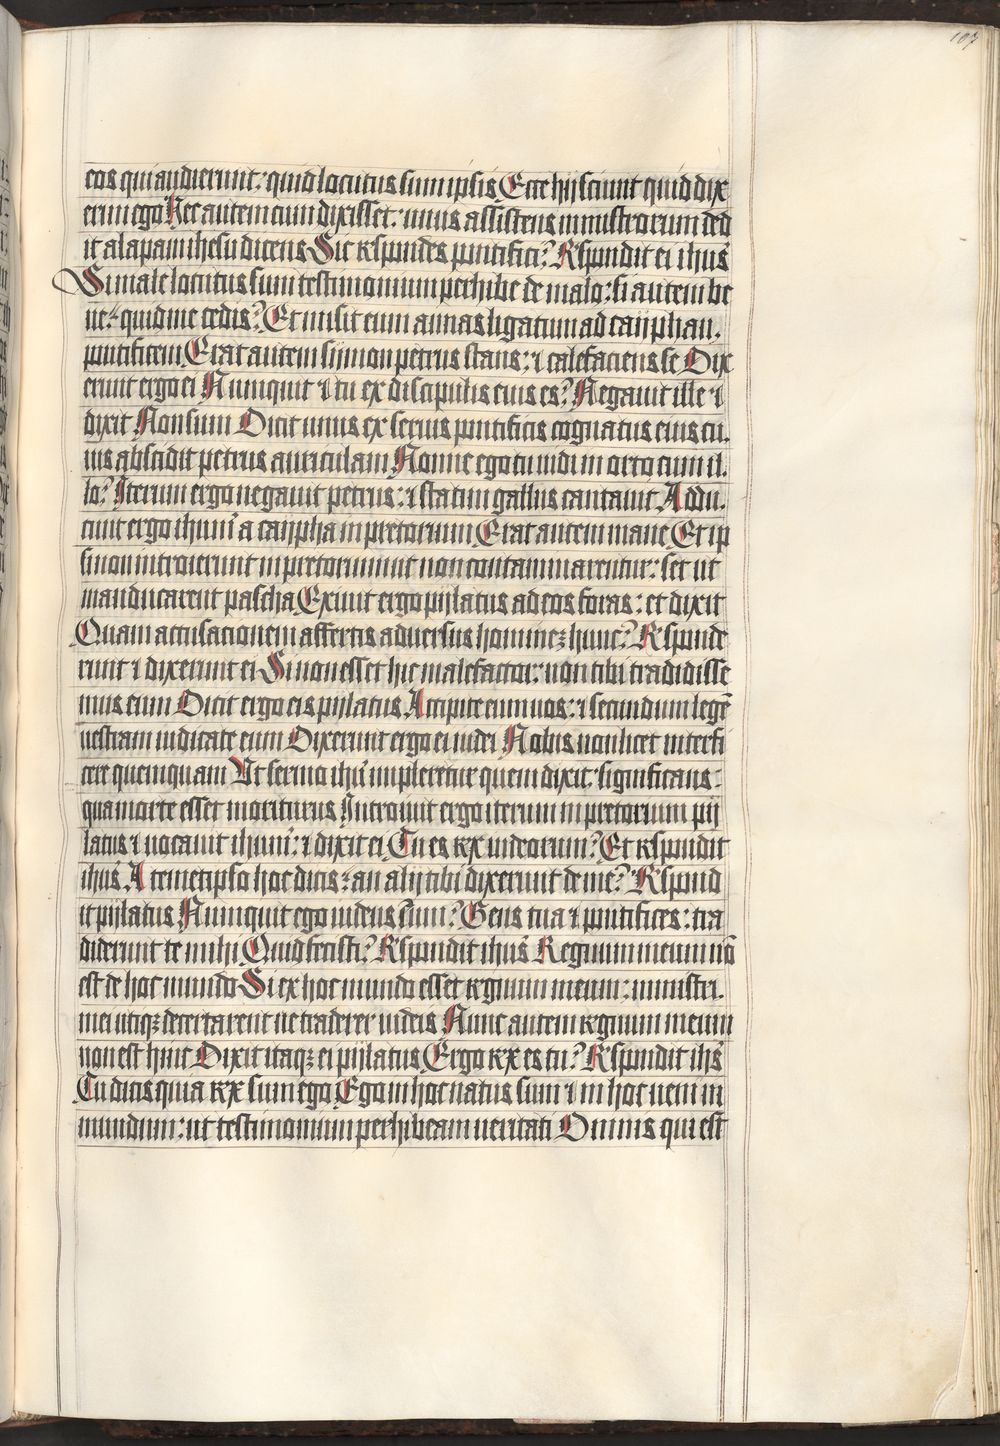 107
eos qui audierunt: quid locutus sum ipsis Ecce hij sciunt quid dix
erim ego Hec autem cum dixisset: unus assistens ministrorum ded
it alapam ihesu dicens Sic respondes pontifici? Respondit ei ihus
Si male locutus sum testimonium perhibe de malo: si autem be
ne: quid me cedis? Et misit eum annas ligatum ad cayphan.
pontificem Erat autem symon petrus stans: ⁊ calefaciens se Dix
erunt ergo ei Numquit ⁊ tu ex discipulis eius es? Negauit ille ⁊
dixit Non sum Dicit unus ex seruis pontificis cognatus eius cu.
ius abscidit petrus auriculam Nonne ego tu uidi in orto cum il.
lo? Iterum ergo negauit petrus: ⁊ statim gallus cantauit Addu.
cunt ergo ihum a caypha in pretorium Erat autem mane Et ip
si non introierunt in pretorium ut non contaminarentur: set ut
manducarent pascha Exiuit ergo pylatus ad eos foras: et dixit
Quam accusacionem affertis aduersus hominez hunc? Responde
runt ⁊ dixerunt ei Si non esset hic malefactor: non tibi tradidisse
mus eum Dicit ergo eis pylatus Accipite eum uos: ⁊ secundum legē
uestram iudicate eum Dixerunt ergo ei iudei Nobis non licet interfi
cere quemquam Ut sermo ihu impleretur quem dixit: significans:
qua morte esset moriturus Introiuit ergo iterum in pretorium py
latus ⁊ uocauit ihum: ⁊ dixit ei Tu es rex iudeorum? Et respondit
ihus A temetipso hoc dicis: an alij tibi dixerunt de me? Respond
it pylatus Numquit ego iudeus sum? Gens tua ⁊ pontifices: tra
diderunt te mihi Quid fecisti? Respondit ihus Regnum meum nō
est de hoc mundo Si ex hoc mundo esset regnum meum: ministri.
mei utiqz decertarent ne traderer iudeis Nunc autem regnum meum
non est hinc Dixit itaqz ei pylatus Ergo rex es tu? Respondit ihs
Tu dicis quia rex sum ego Ego in hoc natus sum ⁊ in hoc ueni in
mundum: ut testimonium perhibeam ueritati Omnis qui est